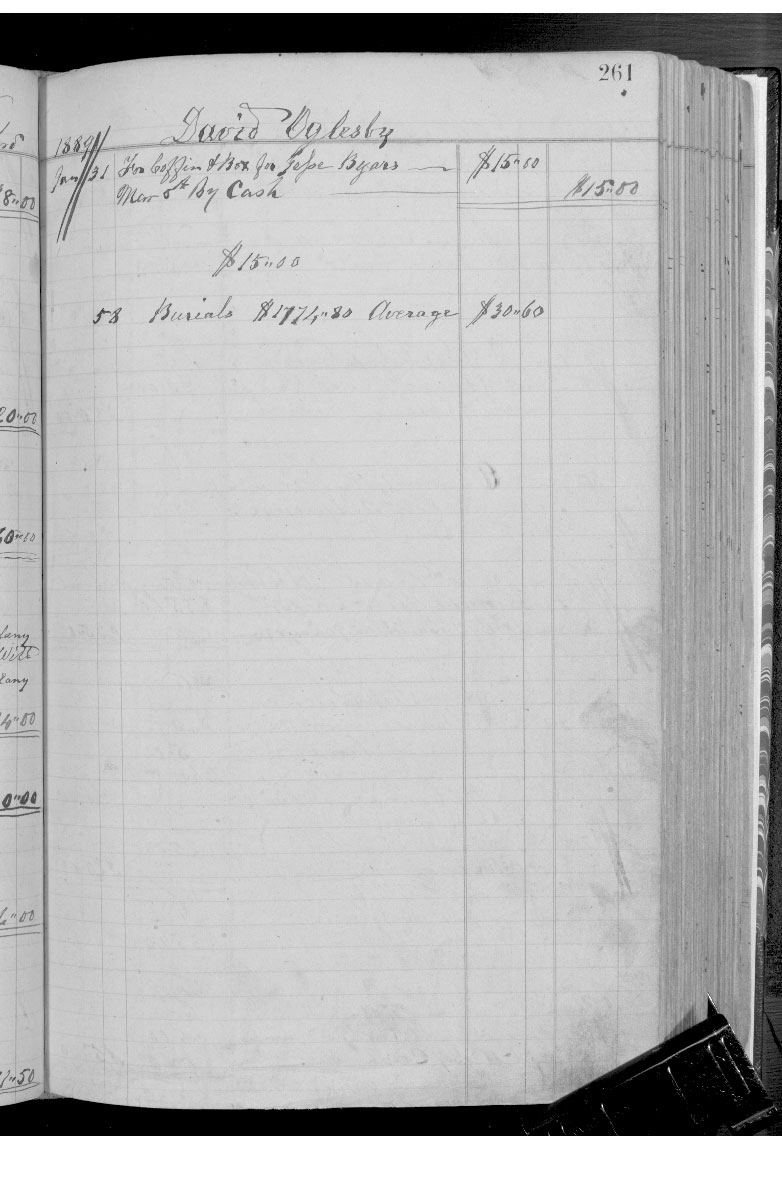 261
David Oglesby
1889
Jan 31 For Coffin & Box for Jesse Byars $15"00
Mar 8th By Cash $15"00
$15"00
58 Burials $1774"80 Average $30"60
8"00
20"00
60"00
4"00
0"00
"00
"50